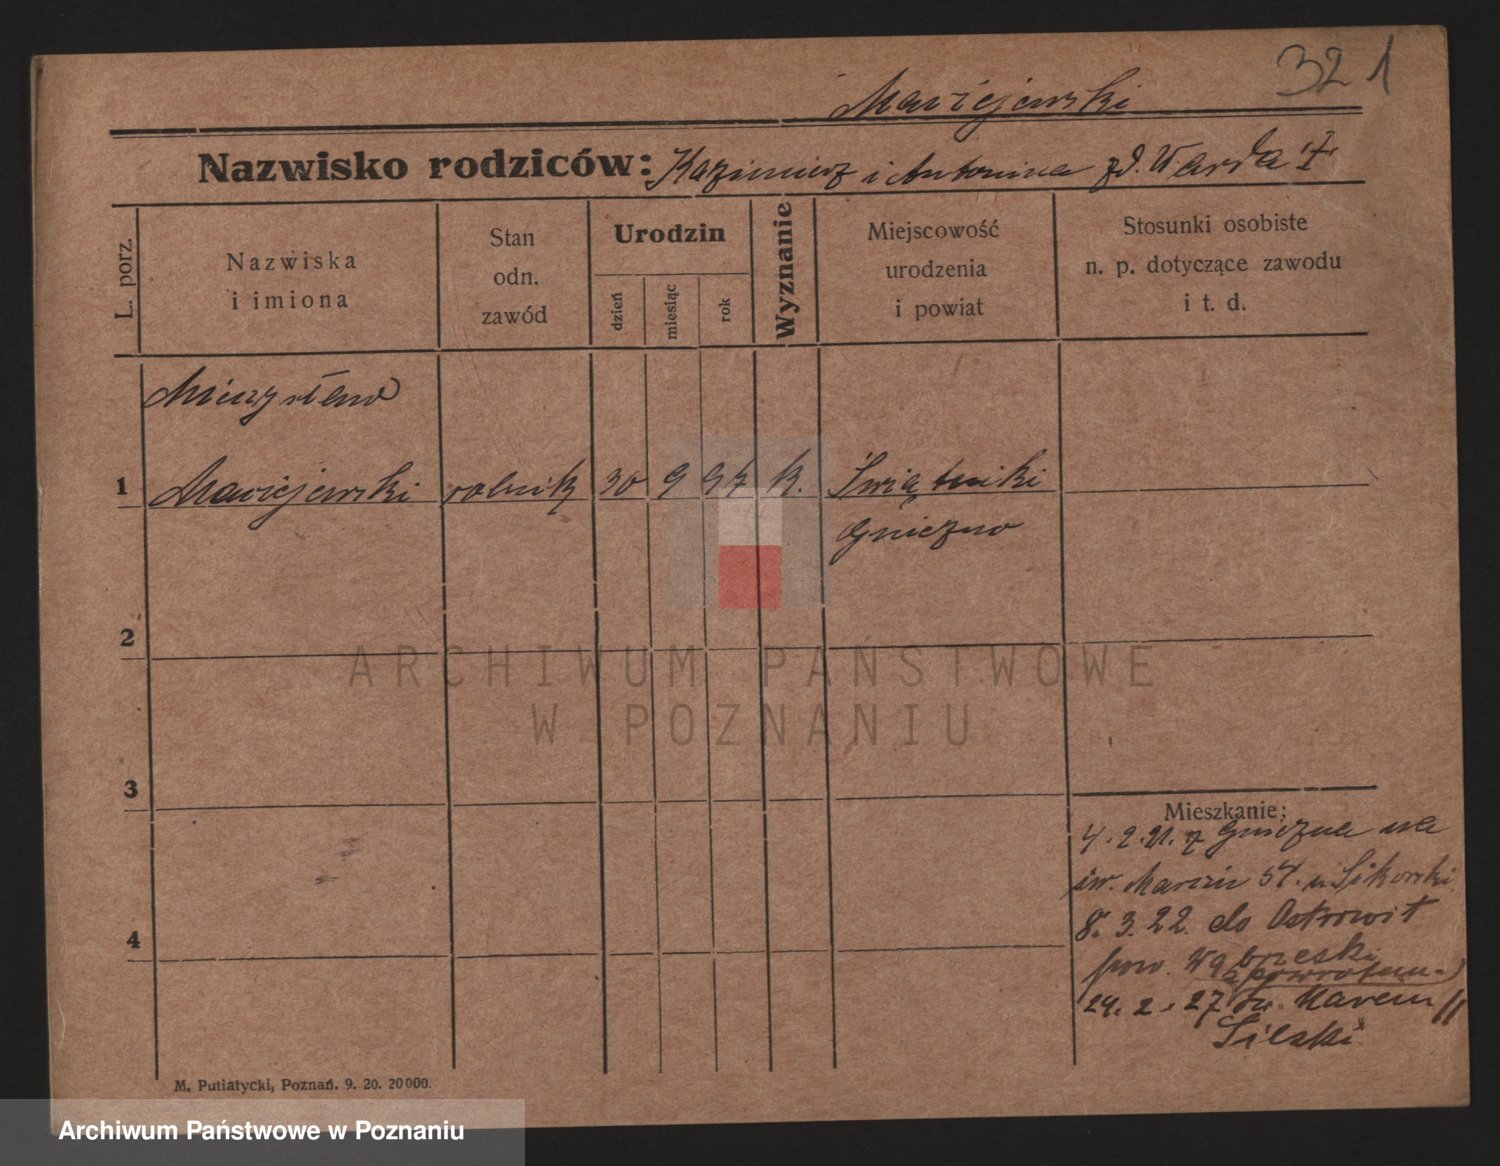 321
Maciejewski
Nazwisko rodziców: Kazimierz i Antonina zd. Warda
L. porz.
Nazwiska
i imiona
Stan
odn.
zawód
Urodzin
dzień
miesiąc
rok
Wyznanie
Miejscowość
urodzenia
i powiat
Stosunki osobiste
n. p. dotyczące zawodu
i t. d.
Mieczysław
1 Maciejewski rolnik 30 9 k. Świątniki
Gniezno
2
ARCHIWUM PAŃSTWOWE
W POZNANIU
3
Mieszkanie:
4. 2. 21. z Gniezna na
św. Marcin 57. u Sikorski
8. 3. 22. do Ostrowit
4
pow. Wąbrzeski
z powrotem
24. 2. 27 św. Marcin 11
M. Putiatycki, Poznań. 9. 20. 20000.
Archiwum Państwowe w Poznaniu